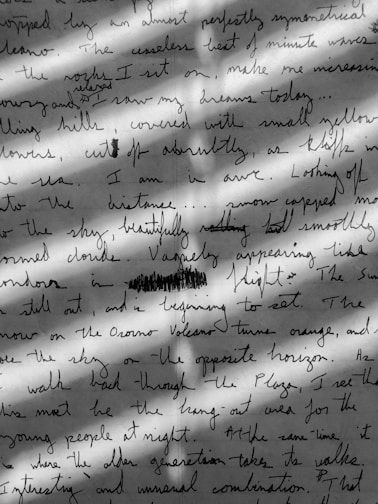 topped by an almost perfectly symmetrical
volcano. The ceaseless beat of minute waves
the rocks I sit on, make me increasin
owry and relaxed I saw my dreams today...
lling hills, covered with small yellow
lowers, cut off abruptly, as kliffs in
he sea. I am in awe. Looking off
nto the distance... snow capped mo
o the sky, beautifully rolling smoothly
ormed clouds. Vaguely appearing like
ondors in flight. The Sun
s still out, and is beginning to set. The
now on the Osorno Volcano turns orange, and
oe the sky on the opposite horizon. As
walk back through the Plaza, I see tha
his must be the hang-out area for the
young people at night. At the same time it
is where the older generation takes its walks.
Interesting and unusual combination. That